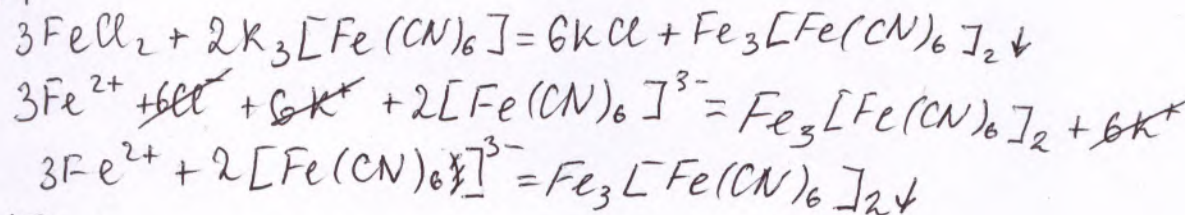 3FeCl₂ + 2K₃[Fe(CN)₆] = 6KCl + Fe₃[Fe(CN)₆]₂↓
3Fe²⁺ + 6Cl⁻ + 6K⁺ + 2[Fe(CN)₆]³⁻ = Fe₃[Fe(CN)₆]₂ + 6K⁺
3Fe²⁺ + 2[Fe(CN)₆]³⁻ = Fe₃[Fe(CN)₆]₂↓